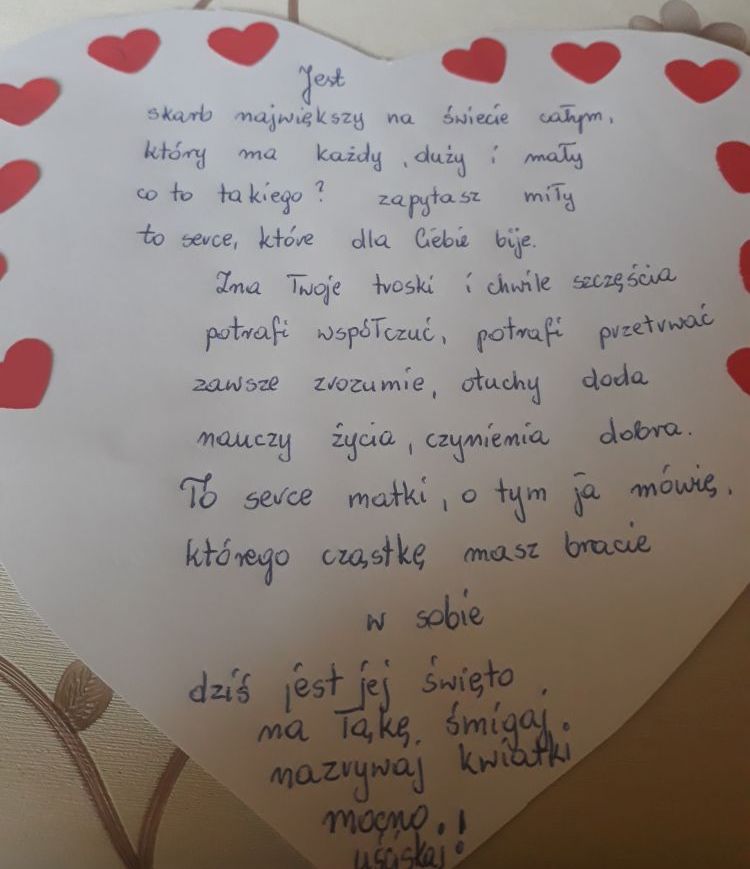 Jest
skarb największy na świecie całym,
który ma każdy, duży i mały
co to takiego? zapytasz miły
to serce, które dla Ciebie bije.
Zna Twoje troski i chwile szczęścia
potrafi współczuć, potrafi przetrwać
zawsze zrozumie, otuchy doda
nauczy życia, czynienia dobra.
To serce matki, o tym ja mówię,
którego cząstkę masz bracie
w sobie
dziś jest jej święto
na łąkę, śmigaj.
nazrywaj kwiatki
mocno.!
uściskaj!